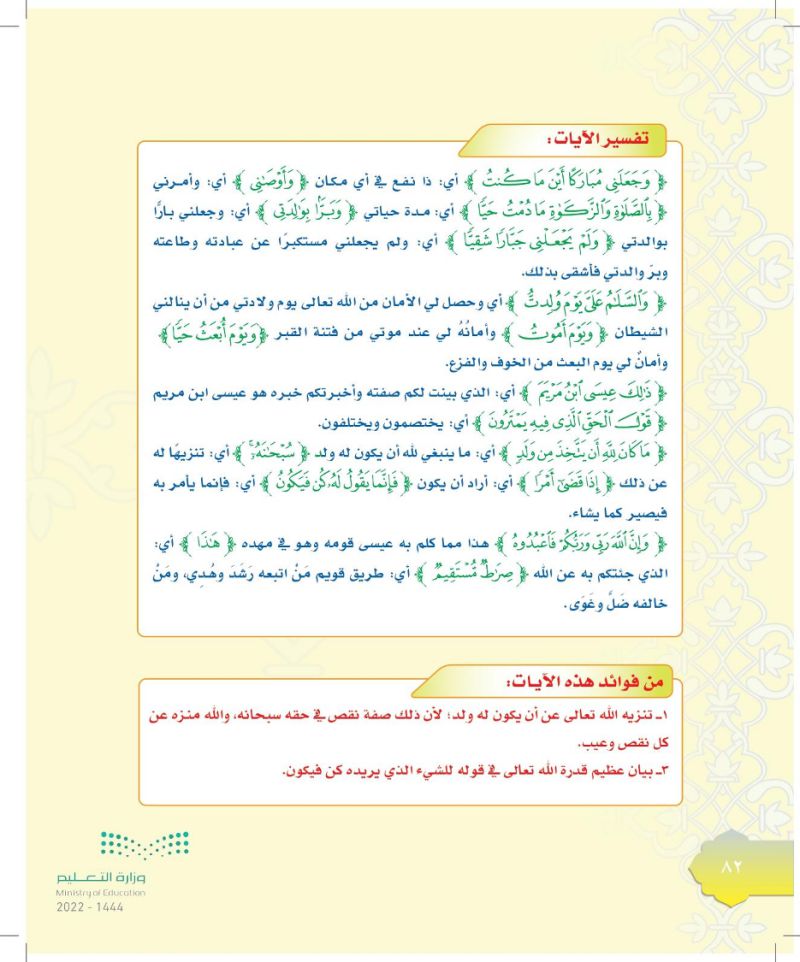 تفسير الآيات:
﴿ وَجَعَلَنِي مُبَارَكًا أَيْنَ مَا كُنتُ ﴾ أي: ذا نفع في أي مكان ﴿ وَأَوْصَٰنِي ﴾ أي: وأمرني
﴿ بِٱلصَّلَوٰةِ وَٱلزَّكَوٰةِ مَا دُمْتُ حَيًّا ﴾ أي: مدة حياتي ﴿ وَبَرًّۢا بِوَٰلِدَتِي ﴾ أي: وجعلني بارًّا
بوالدتي ﴿ وَلَمْ يَجْعَلْنِي جَبَّارًا شَقِيًّا ﴾ أي: ولم يجعلني مستكبرًا عن عبادته وطاعته
وبرّ والدتي فأشقى بذلك.
﴿ وَٱلسَّلَٰمُ عَلَيَّ يَوْمَ وُلِدتُّ ﴾ أي وحصل لي الأمان من الله تعالى يوم ولادتي من أن ينالني
الشيطان ﴿ وَيَوْمَ أَمُوتُ ﴾ وأمانُهُ لي عند موتي من فتنة القبر ﴿وَيَوْمَ أُبْعَثُ حَيًّا﴾
وأمانٌ لي يوم البعث من الخوف والفزع.
﴿ ذَٰلِكَ عِيسَى ٱبْنُ مَرْيَمَ ﴾ أي: الذي بينت لكم صفته وأخبرتكم خبره هو عيسى ابن مريم
﴿ قَوْلَ ٱلْحَقِّ ٱلَّذِي فِيهِ يَمْتَرُونَ ﴾ أي: يختصمون ويختلفون.
﴿ مَا كَانَ لِلَّهِ أَن يَتَّخِذَ مِن وَلَدٍ ﴾ أي: ما ينبغي لله أن يكون له ولد ﴿ سُبْحَٰنَهُۥٓ ﴾ أي: تنزيهًا له
عن ذلك ﴿ إِذَا قَضَىٰٓ أَمْرًا ﴾ أي: أراد أن يكون ﴿ فَإِنَّمَا يَقُولُ لَهُۥ كُن فَيَكُونُ ﴾ أي: فإنما يأمر به
فيصير كما يشاء.
﴿ وَإِنَّ ٱللَّهَ رَبِّي وَرَبُّكُمْ فَٱعْبُدُوهُ ﴾ هذا مما كلم به عيسى قومه وهو في مهده ﴿ هَٰذَا ﴾ أي:
الذي جئتكم به عن الله ﴿ صِرَٰطٌ مُّسْتَقِيمٌ ﴾ أي: طريق قويم مَنْ اتبعه رَشَدَ وهُدِي، ومَنْ
خالفه ضَلَّ وغَوَى.
من فوائد هذه الآيات:
١ـ تنزيه الله تعالى عن أن يكون له ولد؛ لأن ذلك صفة نقص في حقه سبحانه، والله منزه عن
كل نقص وعيب.
٣ـ بيان عظيم قدرة الله تعالى في قوله للشيء الذي يريده كن فيكون.
٨٢
وزارة التعـليم
Ministry of Education
2022 - 1444